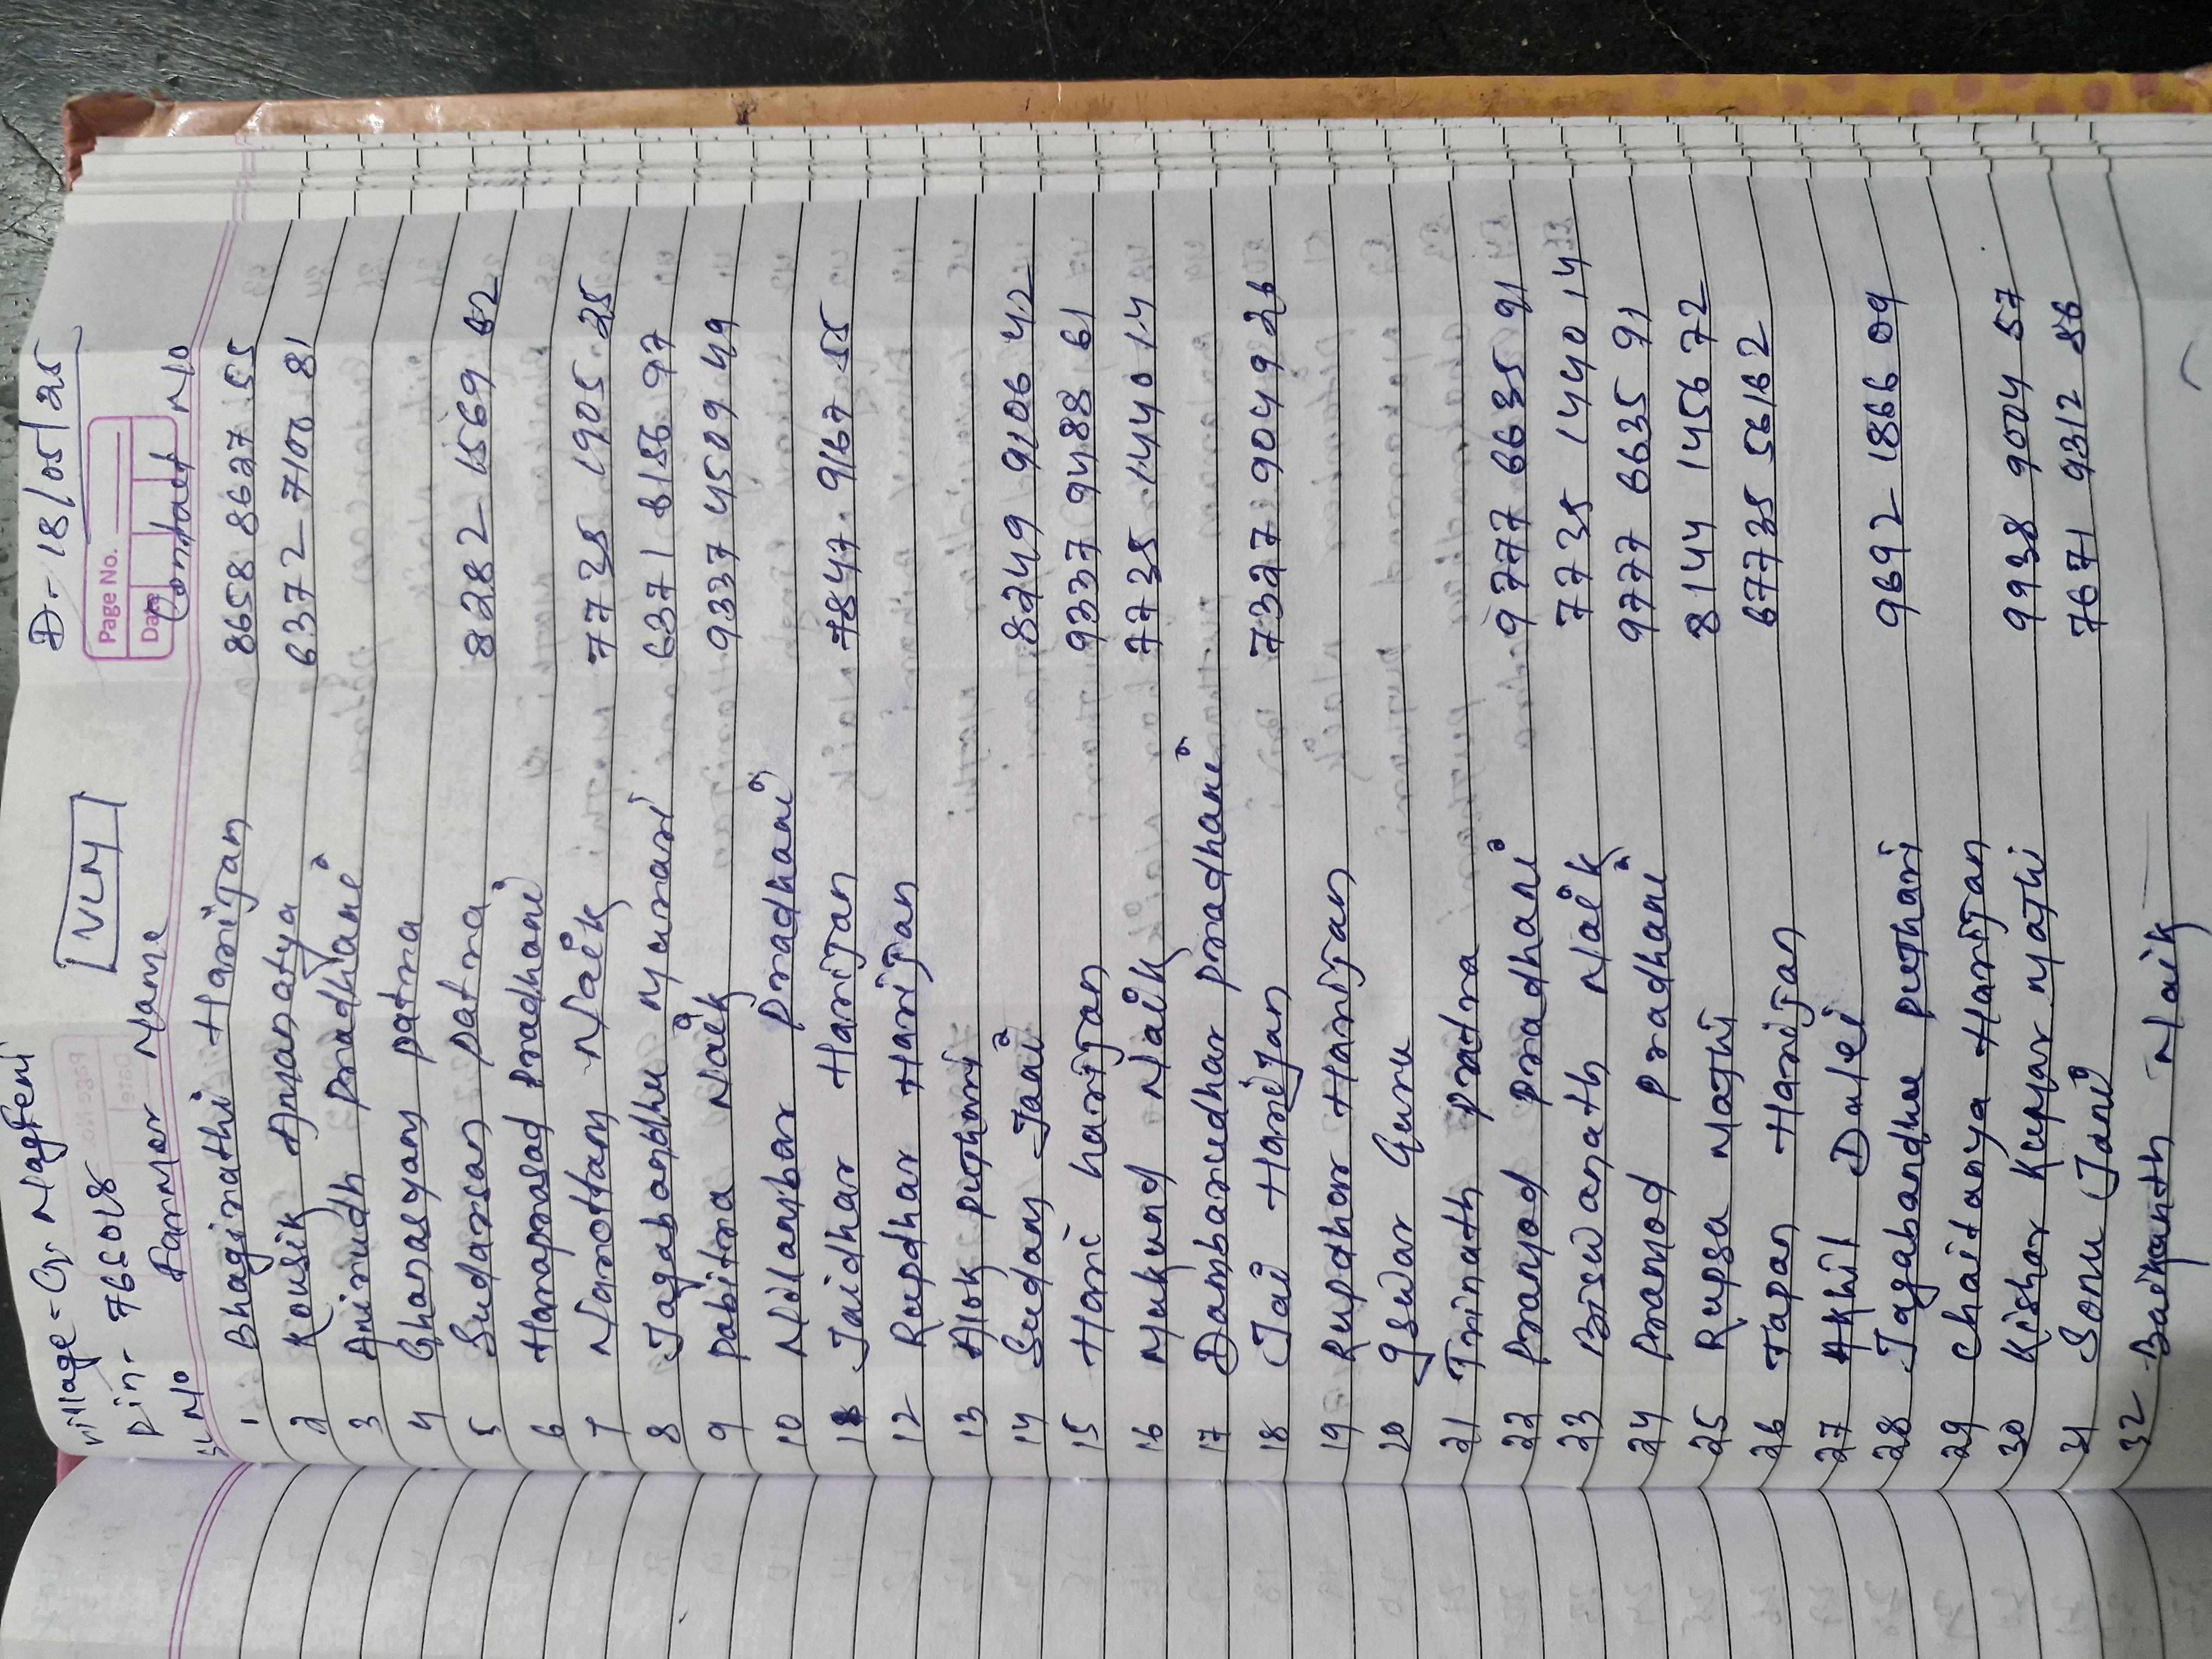 D - 18/05/25
Village - Gr Nagfeni
VLM
Page No.
Pin - 765018
Date
Sl No Farmer Name Contact No
1 Bhagirathi Harijan 8658 8627 55
2 Kousik Amanatya 6372 7108 81
3 Anirudh Pradhani
4 Ghanasyam patra
5 Sudarsan patra 8282 1569 62
6 Haraprasad Pradhani
7 Narottam Naik 7735 1905 25
8 Jagabandhu Munari 6371 8156 97
9 Pabitra Naik 9337 4509 49
10 Nilambar Pradhani
11 Jaidhar Harijan 7847 9167 55
12 Rupdhar Harijan
13 Alok pujhari
14 Sudam Jani 8249 9106 42
15 Hari harijan 9337 9488 61
16 Mukund Naik 7735 1440 14
17 Dambarudhar pradhani
18 Jai Harijan 7327 9049 26
19 Rupdhar Harijan
20 Iswar Guru
21 Trinath patra
22 Pramod pradhani 9777 6635 91
23 Biswanath Naik 7735 1440 14
24 Pramod pradhani 9777 6635 91
25 Rupsa Majhi 8144 1456 72
26 Tapan Harijan 67735 56162
27 Akhil Dalei
28 Jagabandhu pujhari 9692 1866 09
29 Chaitanya Harijan
30 Kishor Kumar majhi 9938 9004 57
31 Sonu Jani 7671 9312 86
32 Baikanth Naik